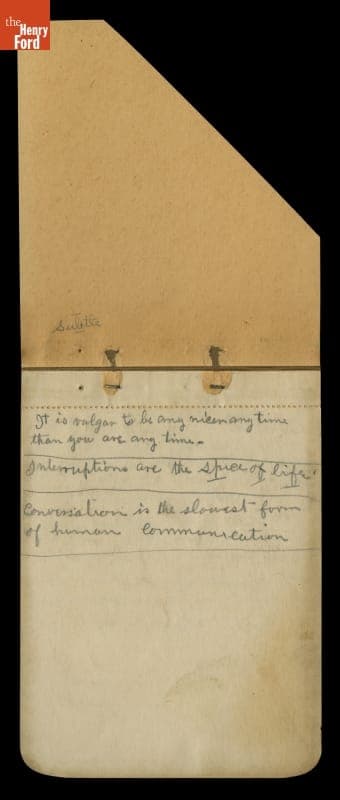 the
Henry
Ford
It is vulgar to be any nicer any time
than you are any time.
Interruptions are the spice of life.
Conversation is the slowest form
of human communication